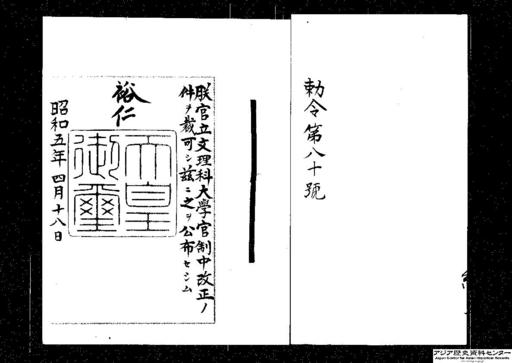 勅令第八十號
朕官立文理科大學官制中改正ノ
件ヲ裁可シ茲ニ之ヲ公布セシム
裕仁
天皇
御璽
昭和五年四月十八日
アジア歴史資料センター
Japan Center for Asian Historical Records